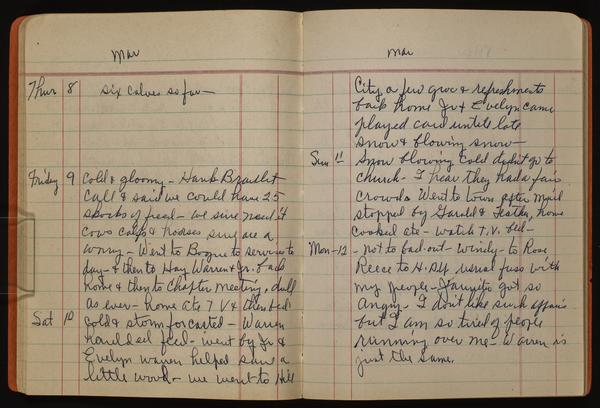 Mar
Thur 8 six calves so far—
Friday 9 Cold & gloomy — Hank
call & said we could have 25
shocks of feed — we sure need it
cows calfs & horses sure are a
worry — Went to Bogue to services to
day — & then to Hay Warren & Jr. back
home & then to Chapter Meeting, dull
as ever — home ate T V & then bed
Sat 10 Cold & storm forcasted — Warren
hauled feed — went by Jr &
Evelyn Warren helped saw a
little wood — we went to Hill
Mar
City a few groc & refreshments
back home Jr & Evelyn came
played card untill late
snow & blowing snow —
Sun 11 Snow blowing Cold didn't go to
church — I hear they had a fair
crowd. Went to town after Mail
stopped by Harold & home
cooked etc — watch T.V. bed —
Mon — 12 — not to bad out — windy — to Rose
Reece to H.D.U. usual fuss with
my people — got so
angry — I don't like such affairs
but I am so tired of people
running over me — Warren is
just the same.